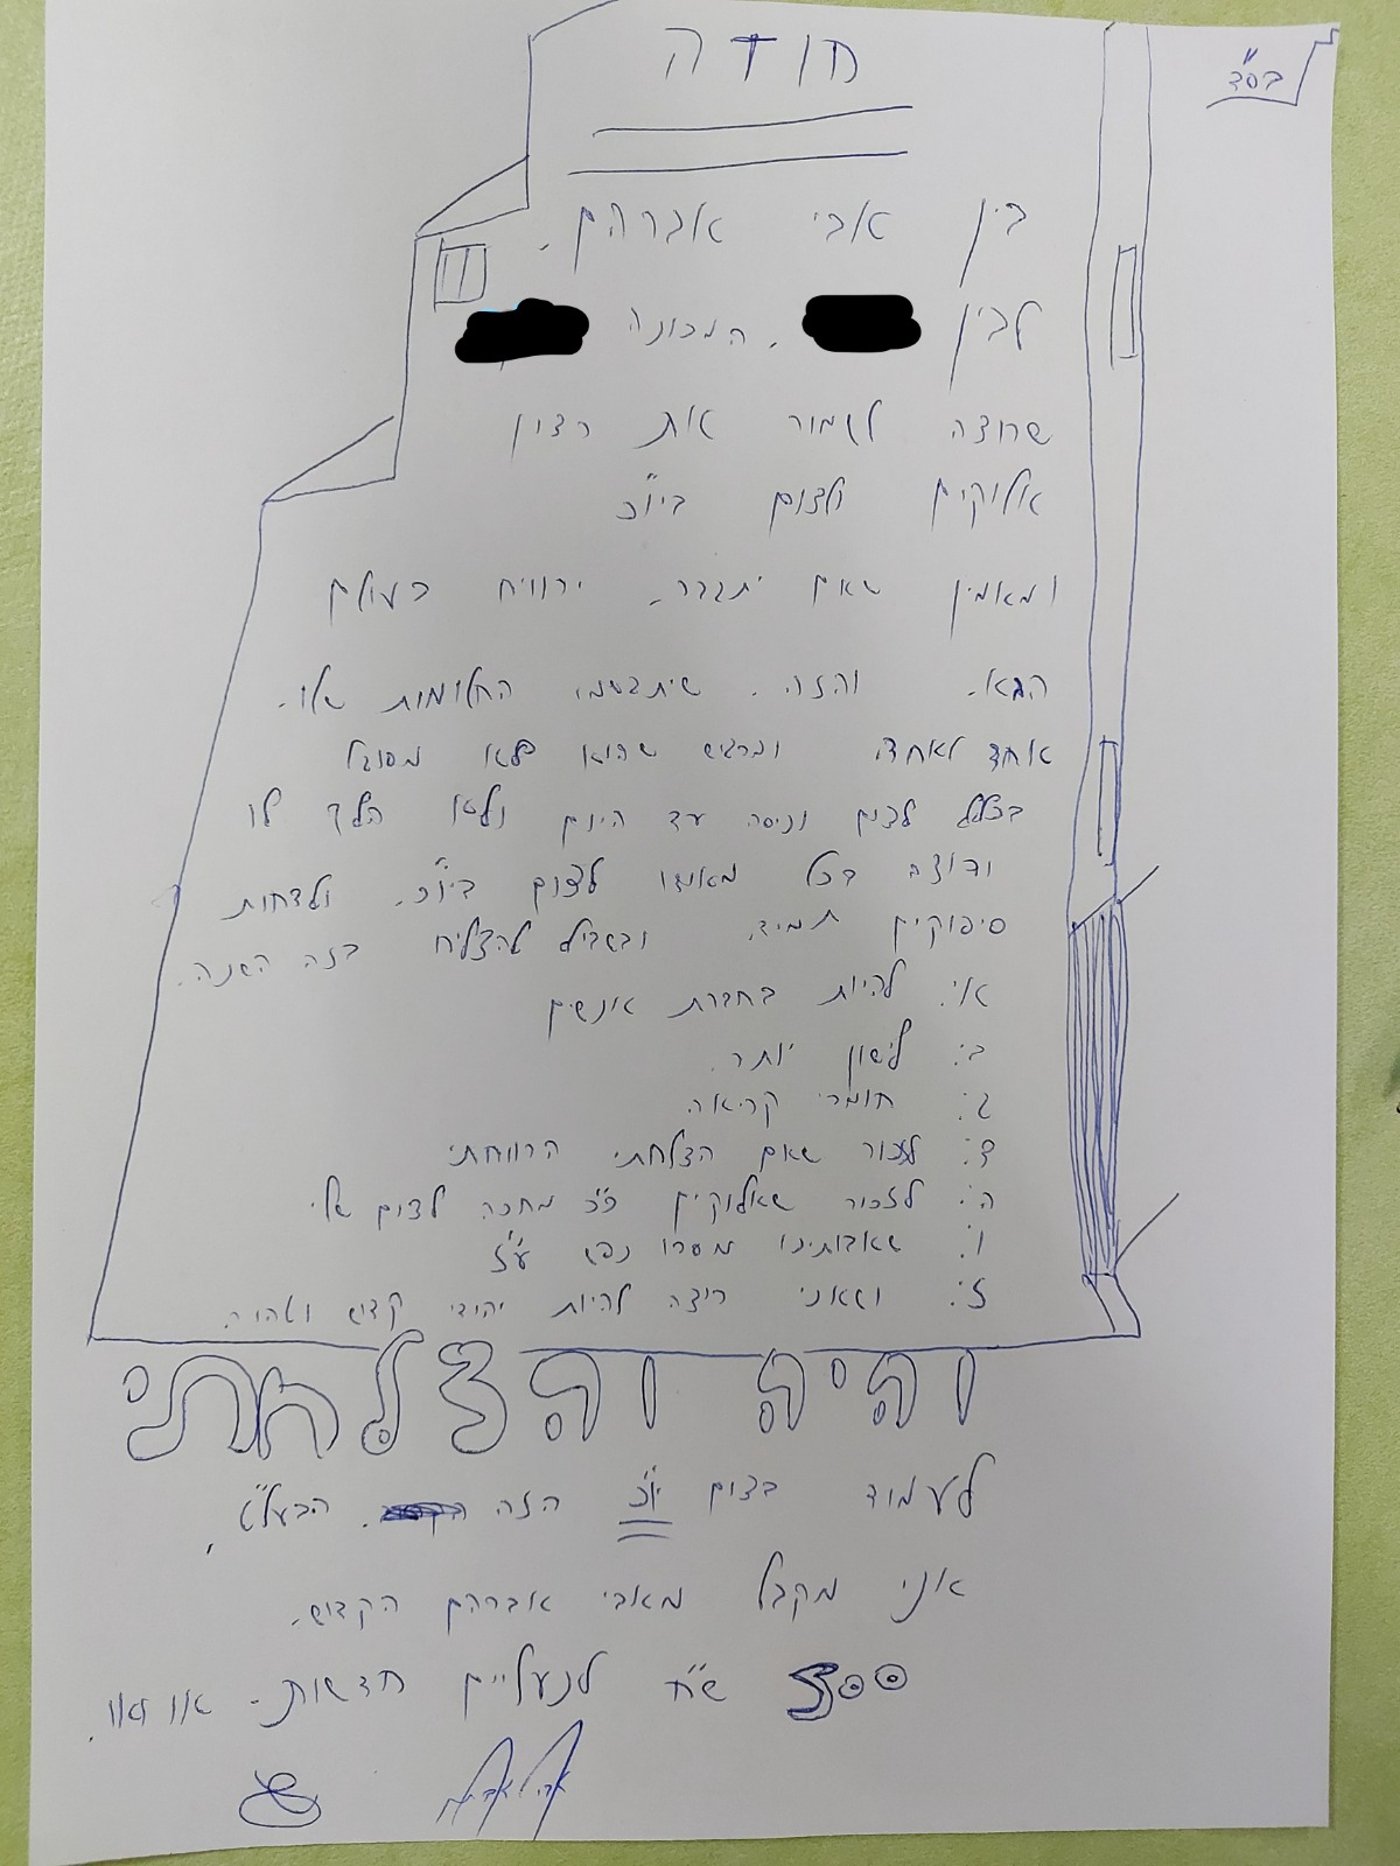 בס"ד
חוזה
בין אבי אברהם.
לבין . המכונה
שרוצה לגמור את רצון
אלוקים ולצום ביו"כ
ומאמין שאם יתגבר. ירוויח בעולם
הבא. והזה. שיתגשמו החלומות שלו.
אחד לאחד. ומרגיש שהוא לא מסוגל
בכלל לצום וניסה עד היום ולא הלך לו
ורוצה בכל מאודו לצום ביו"כ. ולדחות
סיפוקים תמיד. ובשביל להצליח בזה השנה.
א'. להיות בחברת אנשים
ב': לישון יותר.
ג': חומרי קריאה.
ד': לזכור שאם הצלחתי הרווחתי
ה': לזכור שאלוקים כ"כ מחכה לצום שלי
ו': שאבותינו מסרו נפש ע"ז
ז': ושאני רוצה להיות יהודי קדוש וטהור.
והיה והצלחתי
לעמוד בצום יו"כ הזה . הבעל"ט,
אני מקבל מאבי אברהם הקדוש.
300 ש"ח לנעליים חדשות.